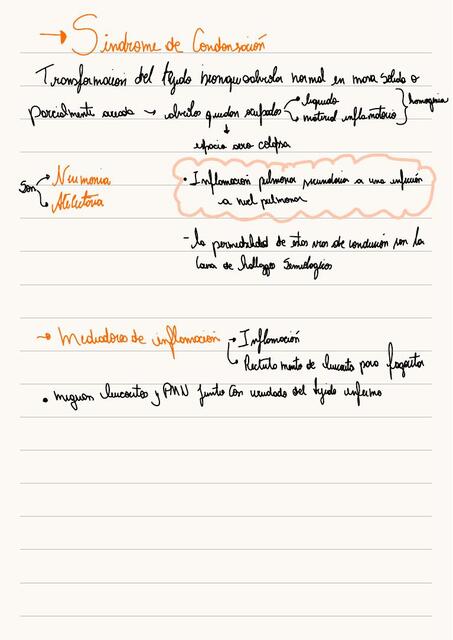 → Síndrome de Condensación
Transformacion del tejido bronquoalveolar normal en masa solida o
parcialmente aireada → alveolos quedan ocupados → liquido
→ material inflamatorio } homogenia
↓
espacio aereo colapsa
Son → Neumonia
→ Atelectasia
• Inflamacion pulmonar secundaria a una infeccion
a nivel pulmonar
- la permeabilidad de estas vias de conduccion son la
causa de hallazgos Semiologicos
→ Mediadores de inflamacion → Inflamación
→ Reclutamiento de leucocitos para fagocitar
• migran leucocitos y PMN junto con exudado del tejido enfermo